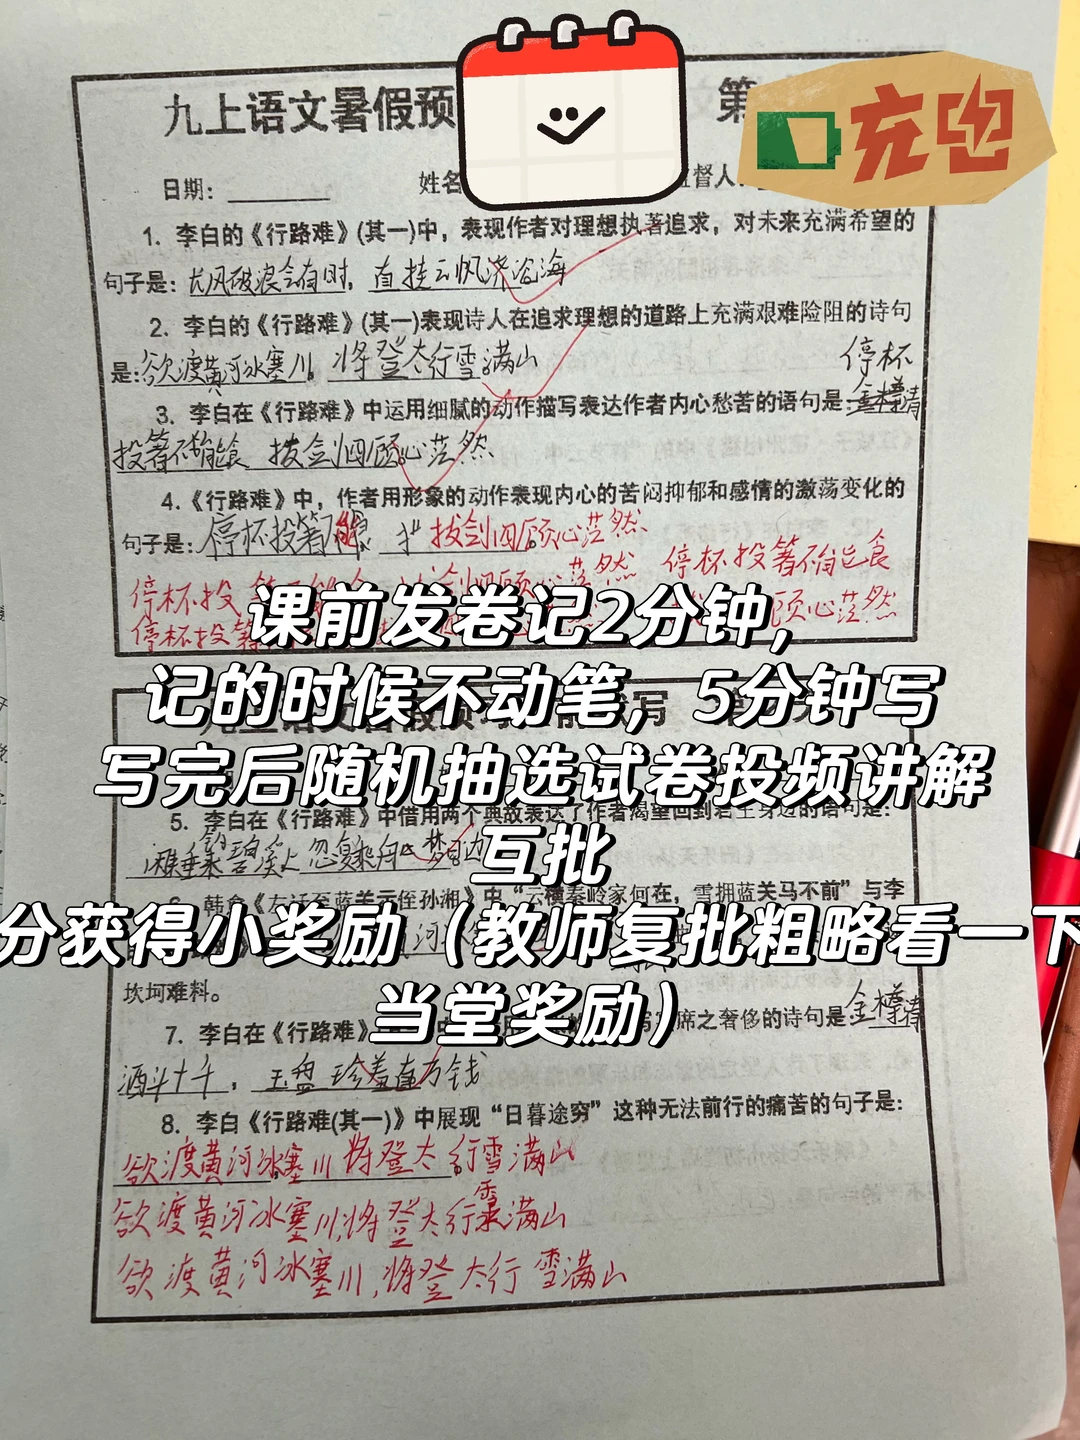 九上语文暑假预
第
充电
日期：
姓名
监督人：
1. 李白的《行路难》(其一)中，表现作者对理想执著追求，对未来充满希望的
句子是：长风破浪会有时，直挂云帆济沧海
2. 李白的《行路难》(其一)表现诗人在追求理想的道路上充满艰难险阻的诗句
是：欲渡黄河冰塞川。将登太行雪满山
停杯
3. 李白在《行路难》中运用细腻的动作描写表达作者内心愁苦的语句是：金樽清
投箸不能食 拔剑四顾心茫然
4.《行路难》中，作者用形象的动作表现内心的苦闷抑郁和感情的激荡变化的
句子是：停杯投箸不能 拔剑四顾心茫然
停杯投箸不能食
停杯投
顾心茫然
停杯投箸
课前发卷记2分钟，
记的时候不动笔，5分钟写
写完后随机抽选试卷投频讲解
互批
分获得小奖励（教师复批粗略看一下
当堂奖励）
5. 李白在《行路难》中借用两个典故表达了作者渴望回到君王身边的语句是：
垂 碧溪上 忽复乘舟 梦日边
6. 韩愈《左迁至蓝关示侄孙湘》中“云横秦岭家何在，雪拥蓝关马不前”与李
坎坷难料。
7. 李白在《行路难》 中 席之奢侈的诗句是金樽清
酒斗十千，玉盘珍羞直万钱
8. 李白《行路难(其一)》中展现“日暮途穷”这种无法前行的痛苦的句子是：
欲渡黄河冰塞川 将登太行雪满山
欲渡黄河冰塞川，将登太行雪满山
欲渡黄河冰塞川，将登太行雪满山